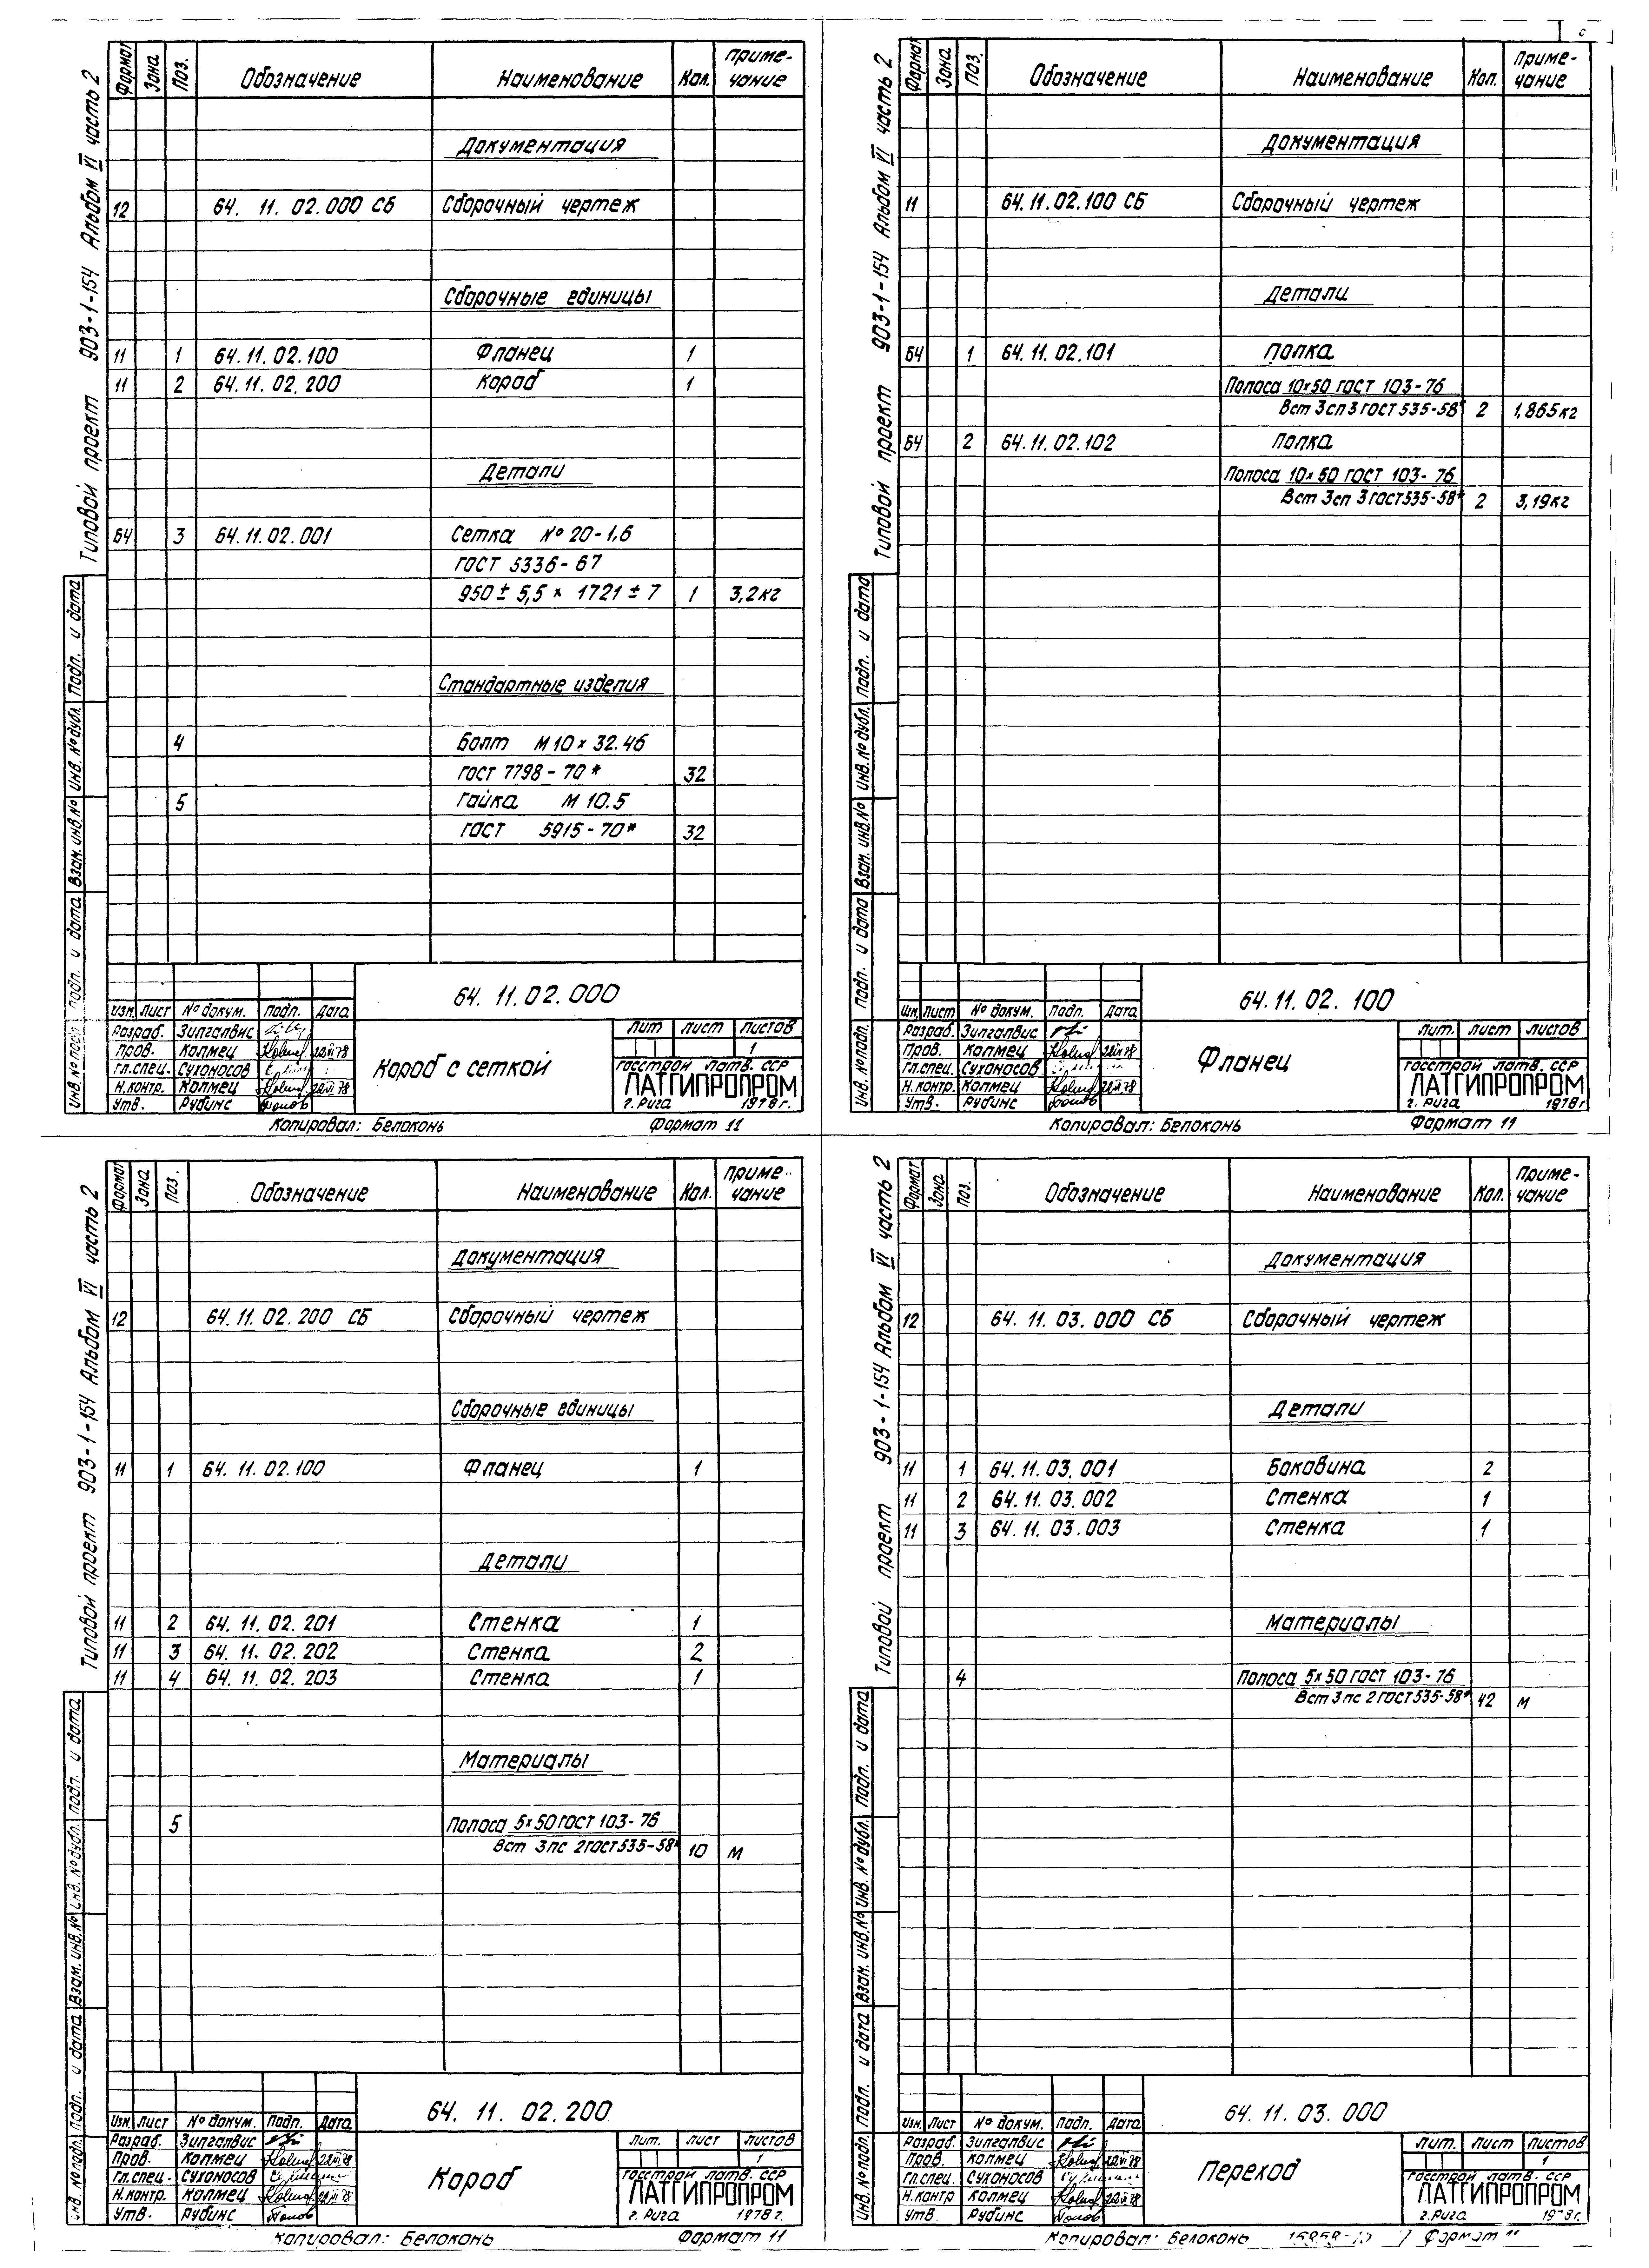 Типовой проект 903-1-154 Альбом VI часть 2
Формат Зона Поз. Обозначение Наименование Кол. Приме-
чание
Документация
12 64. 11. 02.000 СБ Сборочный чертеж
Сборочные единицы
11 1 64.11.02.100 Фланец 1
11 2 64.11.02.200 Короб 1
Детали
БЧ 3 64.11.02.001 Сетка № 20-1,6
ГОСТ 5336-67
950 ± 5,5 × 1721 ± 7 1 3,2кг
Стандартные изделия
4 Болт М10×32.46
ГОСТ 7798-70* 32
5 Гайка М 10.5
ГОСТ 5915-70* 32
Инв. № подл. Подп. и дата Взам. инв. № Инв. № дубл. Подп. и дата
64. 11.02.000
Изм. Лист № докум. Подп. Дата
Разраб. Зилгалвис
Пров. Колмец 22.VI 78
Гл.спец. Сухоносов
Н.контр. Колмец 22.VI 78
Утв. Рубинс
Короб с сеткой
Лит Лист Листов
1
Госстрой Латв. ССР
ЛАТГИПРОПРОМ
г. Рига 1978г.
Копировал: Белоконь Формат 11
Типовой проект 903-1-154 Альбом VI часть 2
Формат Зона Поз. Обозначение Наименование Кол. Приме-
чание
Документация
11 64.11.02.100 СБ Сборочный чертеж
Детали
БЧ 1 64.11.02.101 Полка
Полоса 10×50 ГОСТ 103-76
Вст 3сп3 ГОСТ 535-58* 2 1,865кг
БЧ 2 64.11.02.102 Полка
Полоса 10×50 ГОСТ 103-76
Вст 3сп 3 ГОСТ 535-58* 2 3,19кг
Инв. № подл. Подп. и дата Взам. инв. № Инв. № дубл. Подп. и дата
64.11.02. 100
Изм. Лист № докум. Подп. Дата
Разраб. Зилгалвис
Пров. Колмец 22.VI 78
Гл.спец. Сухоносов
Н.контр. Колмец 22.VI 78
Утв. Рубинс
Фланец
Лит. Лист Листов
Госстрой Латв. ССР
ЛАТГИПРОПРОМ
г. Рига 1978г
Копировал: Белоконь Формат 11
Типовой проект 903-1-154 Альбом VI часть 2
Формат Зона Поз. Обозначение Наименование Кол. Приме-
чание
Документация
12 64. 11. 02. 200 СБ Сборочный чертеж
Сборочные единицы
11 1 64. 11. 02.100 Фланец 1
Детали
11 2 64. 11. 02. 201 Стенка 1
11 3 64. 11. 02. 202 Стенка 2
11 4 64. 11. 02. 203 Стенка 1
Материалы
5 Полоса 5×50 ГОСТ 103-76
Вст 3пс 2 ГОСТ 535-58* 10 м
Инв. № подл. Подп. и дата Взам. инв. № Инв. № дубл. Подп. и дата
64. 11. 02.200
Изм. Лист № докум. Подп. Дата
Разраб. Зилгалвис
Пров. Колмец 22.VI 78
Гл.спец. Сухоносов
Н.контр. Колмец 22.VI 78
Утв. Рубинс
Короб
Лит. Лист Листов
1
Госстрой Латв. ССР
ЛАТГИПРОПРОМ
г. Рига 1978г.
Копировал: Белоконь Формат 11
Типовой проект 903-1-154 Альбом VI часть 2
Формат Зона Поз. Обозначение Наименование Кол. Приме-
чание
Документация
12 64. 11. 03. 000 СБ Сборочный чертеж
Детали
11 1 64. 11. 03. 001 Боковина 2
11 2 64. 11. 03. 002 Стенка 1
11 3 64. 11. 03. 003 Стенка 1
Материалы
4 Полоса 5×50 ГОСТ 103-76
Вст 3пс 2 ГОСТ 535-58* 42 м
Инв. № подл. Подп. и дата Взам. инв. № Инв. № дубл. Подп. и дата
64. 11. 03. 000
Изм. Лист № докум. Подп. Дата
Разраб. Зилгалвис
Пров. Колмец 22.VI 78
Гл.спец. Сухоносов
Н.контр Колмец 22.VI 78
Утв. Рубинс
Переход
Лит. Лист Листов
1
Госстрой Латв. ССР
ЛАТГИПРОПРОМ
г. Рига
Копировал: Белоконь Формат 11